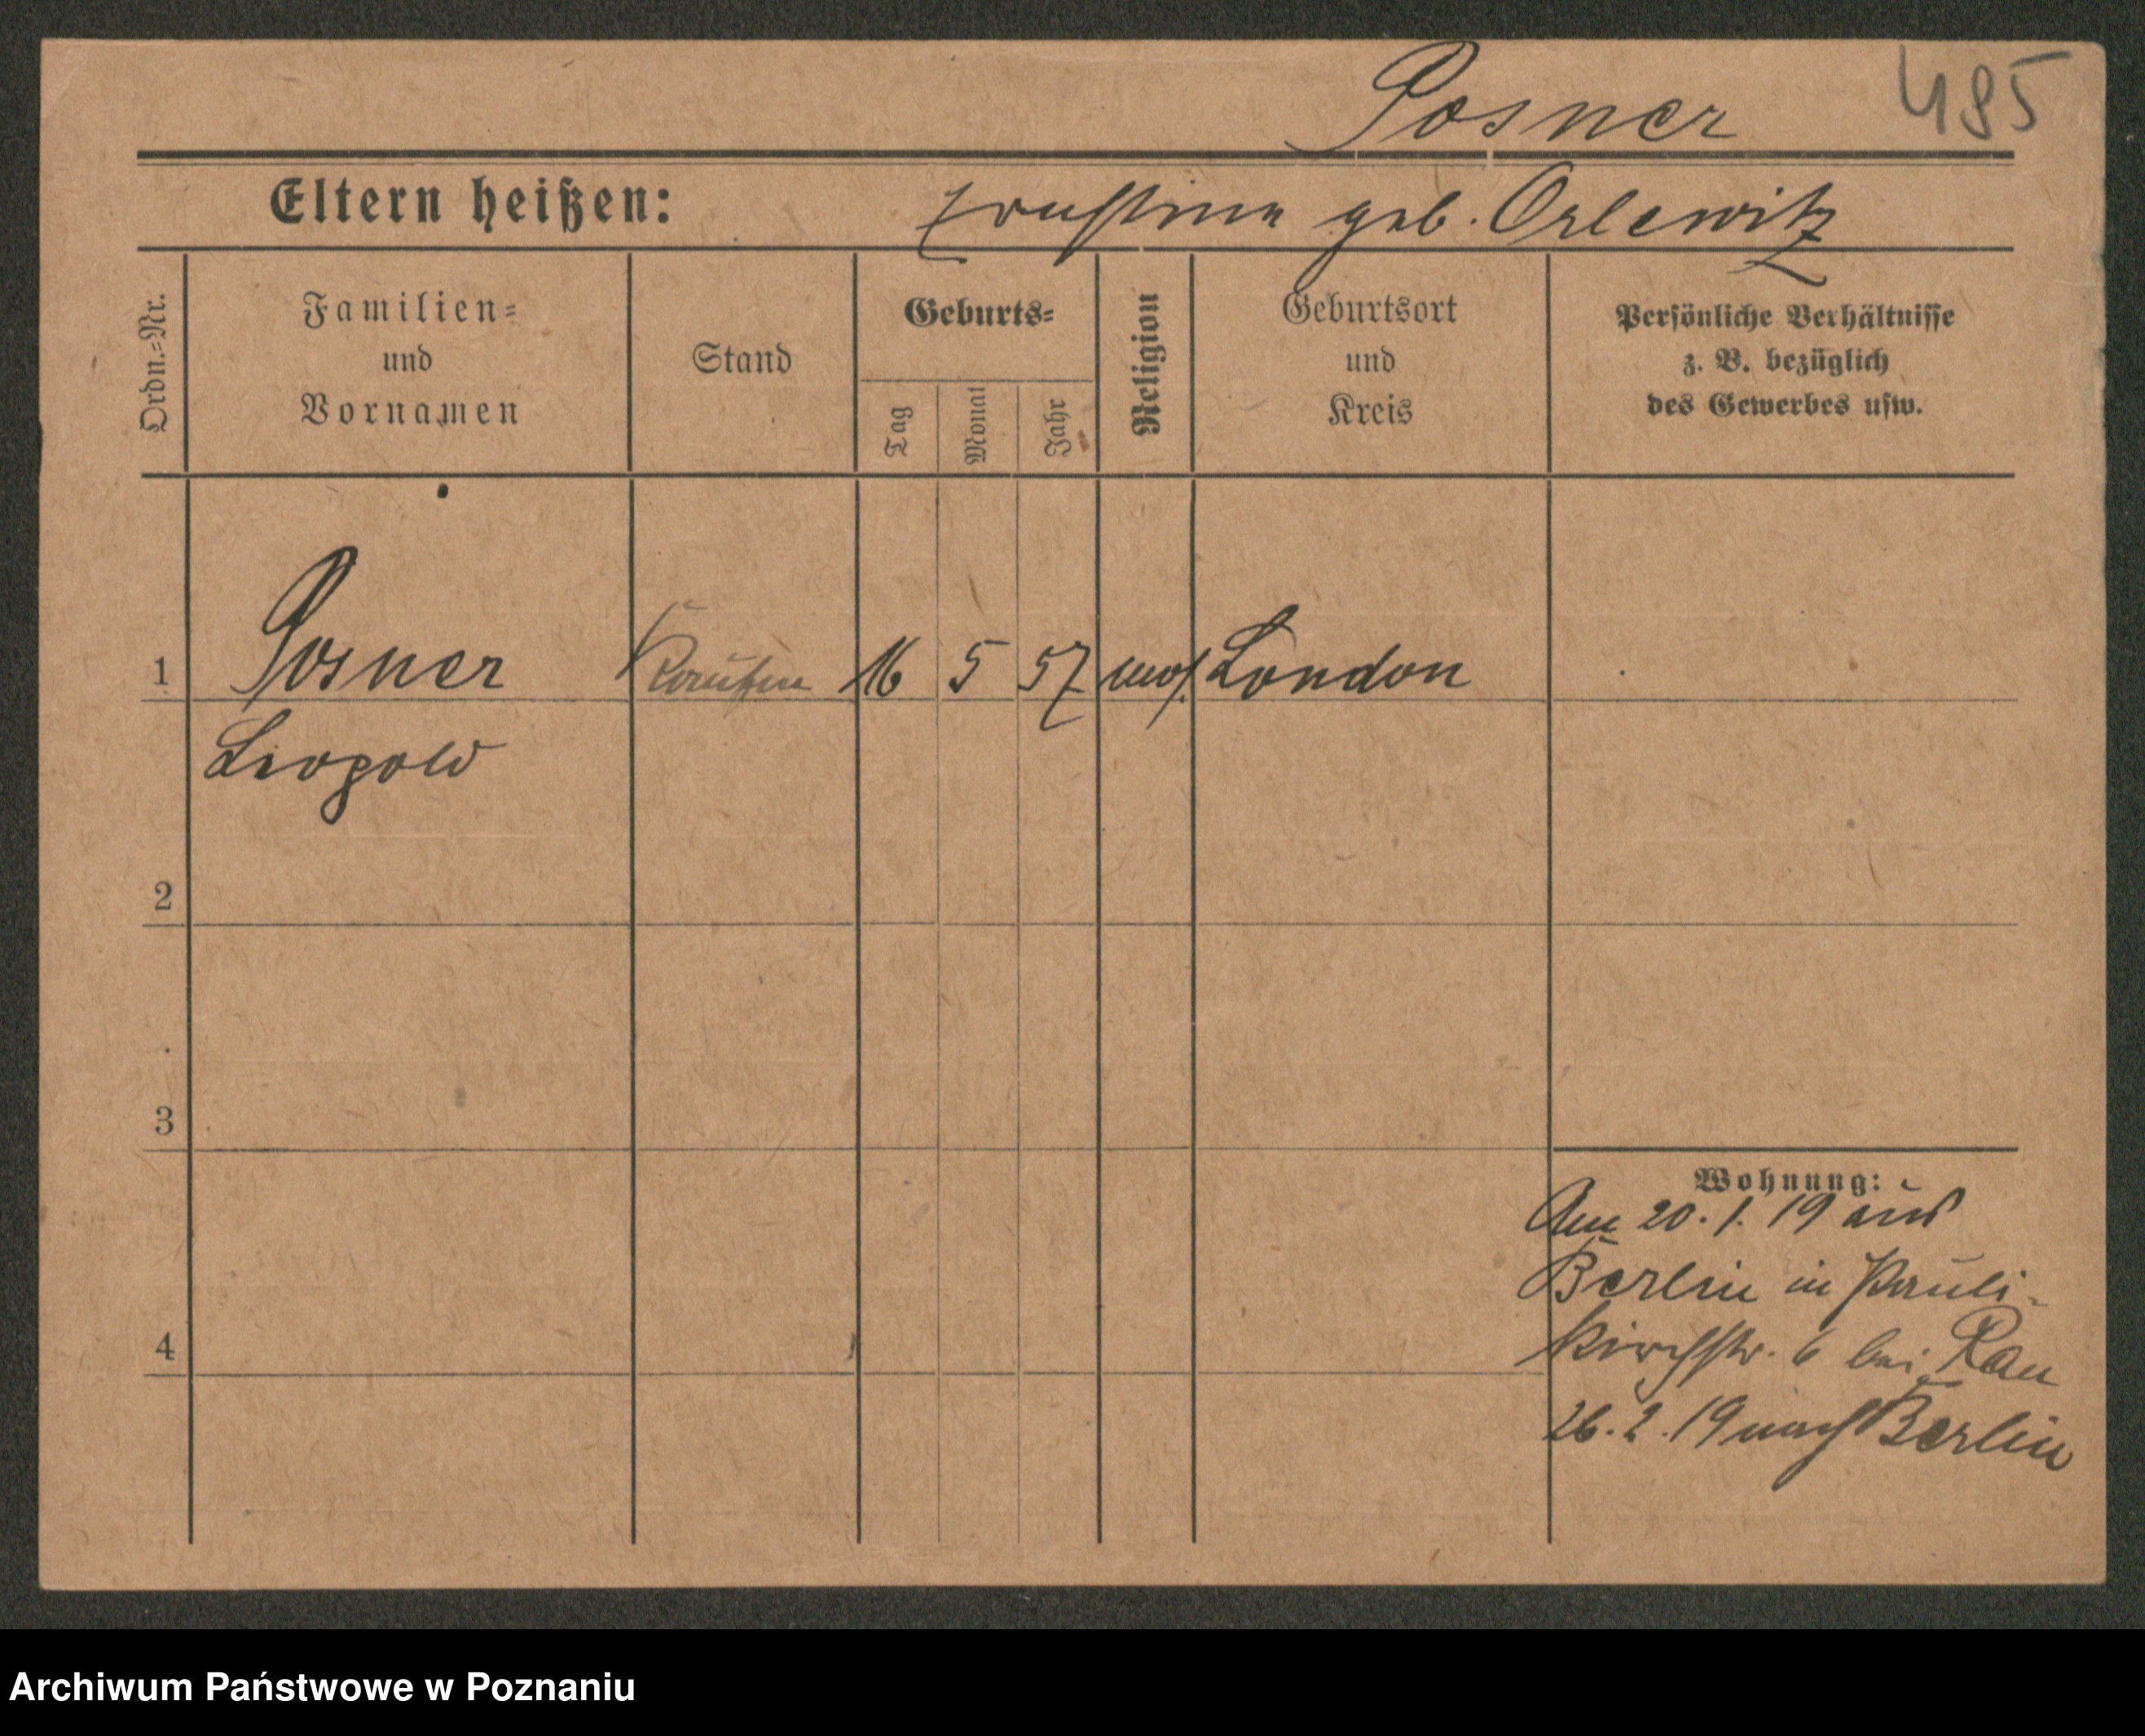 Posner 485
Eltern heißen: Ernstine geb. Orlewitz
Ordn.-Nr.
Familien-
und
Vornamen
Stand
Geburts-
Tag
Monat
Jahr
Religion
Geburtsort
und
Kreis
Persönliche Verhältnisse
z. B. bezüglich
des Gewerbes usw.
1 Posner 16 5 57 mos. London
Leopold
2
3
4
Wohnung:
Am 20. 1. 19 aus
Berlin in Pauli-
kirchstr. 6 bei Rau
26. 2. 19 nach Berlin
Archiwum Państwowe w Poznaniu